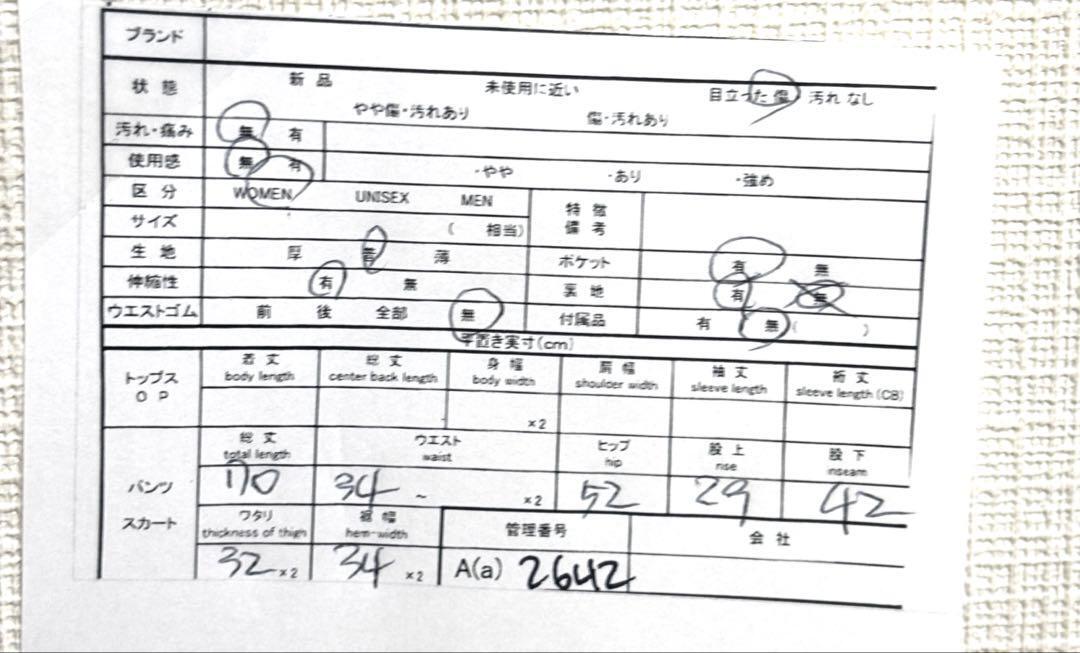 ブランド
状態 新品 未使用に近い 目立った傷 汚れ なし
やや傷・汚れあり 傷・汚れあり
汚れ・痛み 無 有
使用感 無 有 ・やや ・あり ・強め
区分 WOMEN UNISEX MEN 特徴
備考
サイズ ( 相当)
生地 厚 普 薄 ポケット 有 無
伸縮性 有 無 裏地 有 無
ウエストゴム 前 後 全部 無 付属品 有 無 ( )
平置き実寸(cm)
トップス
O P
着丈 総丈 身幅 肩幅 袖丈 裄丈
body length center back length body width shoulder width sleeve length sleeve length (CB)
×2
パンツ
スカート
総丈 ウエスト ヒップ 股上 股下
total length waist hip rise inseam
70 34 ~ ×2 52 29 42
ワタリ 裾幅 管理番号 会社
thickness of thigh hem-width
32 ×2 34 ×2 A(a) 2642